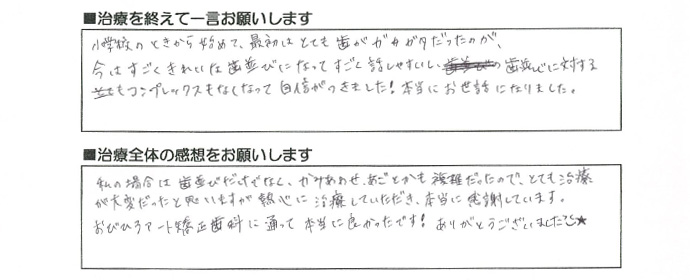 ■治療を終えて一言お願いします
小学校のときから始めて、最初はとても歯がガタガタだったのが、
今はすごくきれいな歯並びになってすごく話しやすいし、歯並びに対する
コンプレックスもなくなって自信がつきました!本当にお世話になりました。
■治療全体の感想をお願いします
私の場合は歯並びだけでなく、かみあわせ、あごとかも複雑だったので、とても治療
が大変だったと思いますが熱心に治療していただき、本当に感謝しています。
おびひろアート矯正歯科に通って本当に良かったです!ありがとうございました★